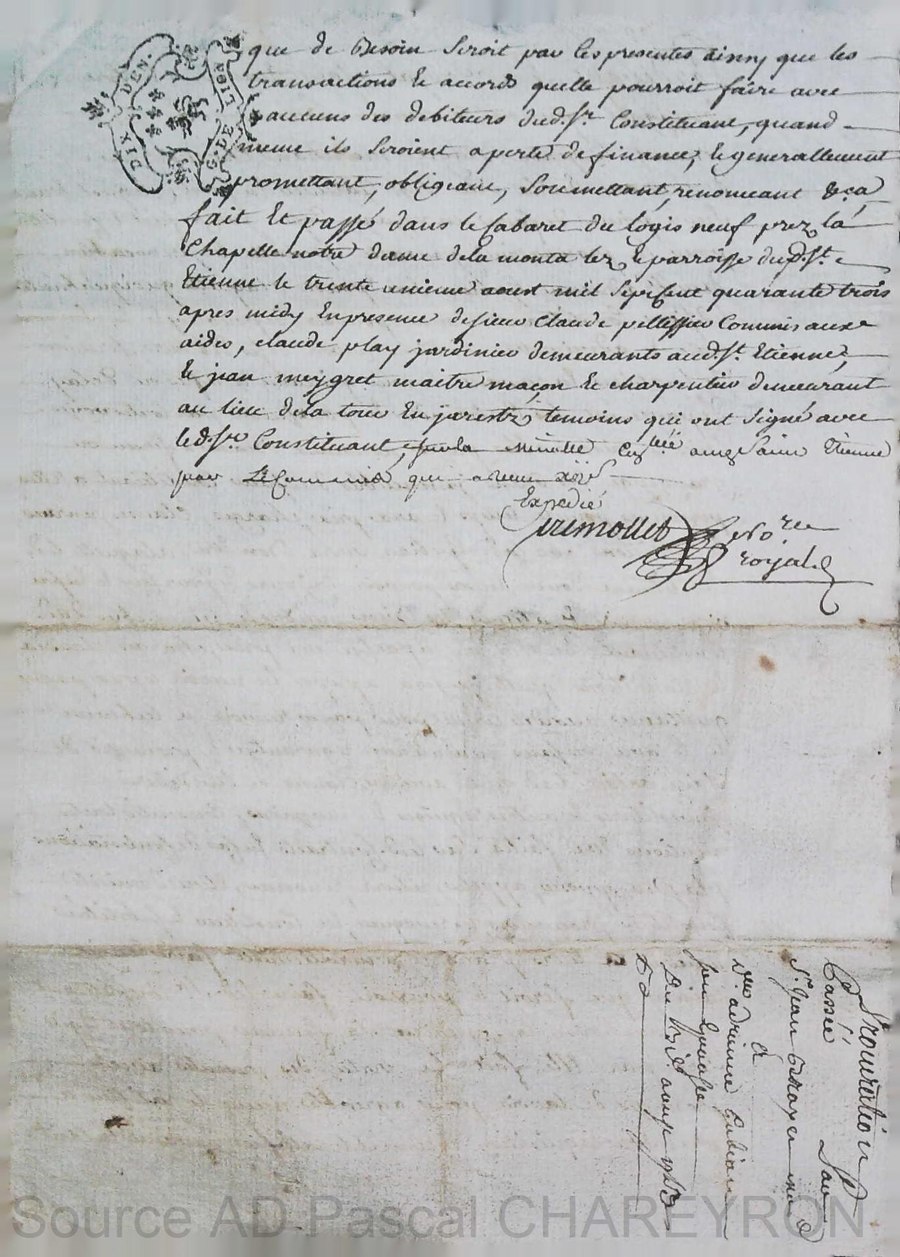 que de Besoin seroit par les presentes ainsy que les
transactions et accords quelle pourroit faire avec
aucuns des debiteurs dud. sr. Constituant, quand
meme ils seroient a perte de finance, et generallement
promettant, obligeant, soumettant, renonceant &ca,
fait et passé dans le Cabaret du logis neuf prez la
Chapelle notre dame de la monta lez et parroisse dud. st.
Etienne le trente unieme aoust mil sept cent quarante trois
apres midy En presence de sieur Claude pellissier Commis aux
aides, claude play jardinier demeurants aud. st. Etienne,
Et jean meygret maitre maçon et charpentier demeurant
au lieu de la tour En jarestz temoins qui ont signé avec
led. sr. Constituant, sur la minutte Con.llée aud. Saint Etienne
par Le Commis qui a receu
Expedié
Tremollet No.re
royal
DIX DEN.
G. DE LION
Procuration
Passée Par
Sr. Jean
a
D.lle adrienne
son Epouse
Du 31e. aoust 1743
Source AD Pascal CHAREYRON